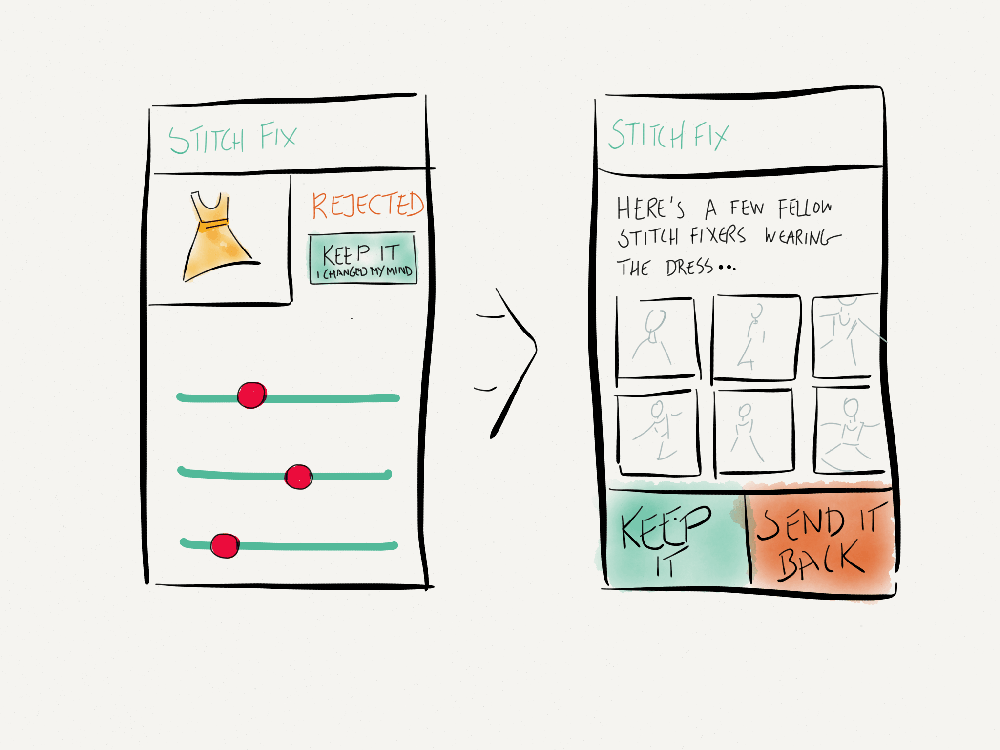 STITCH FIX
REJECTED
KEEP IT
I CHANGED MY MIND
STITCH FIX
HERE'S A FEW FELLOW
STITCH FIXERS WEARING
THE DRESS...
KEEP
IT
SEND IT
BACK